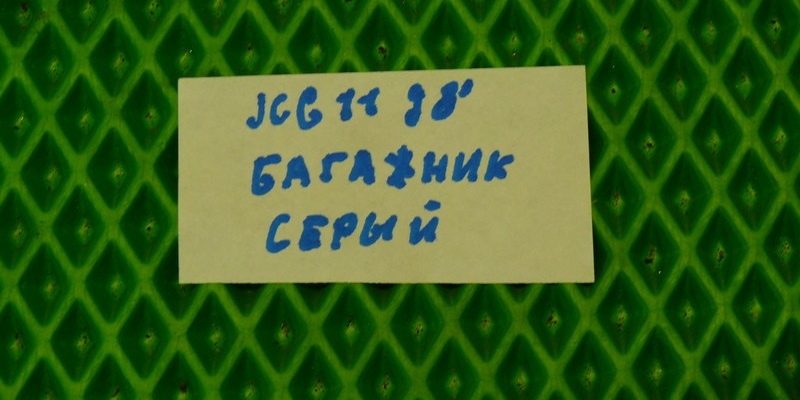 JCG 11 98'
БАГАЖНИК
СЕРЫЙ